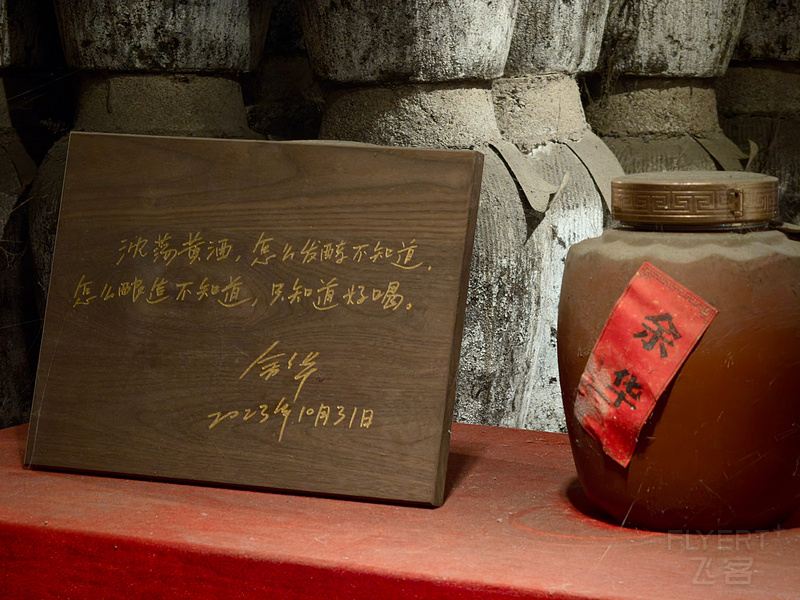 沈荡黄酒，怎么发酵不知道，
怎么酿造不知道，只知道好喝。
余华
2023年10月31日
余华
FLYERT
飞客